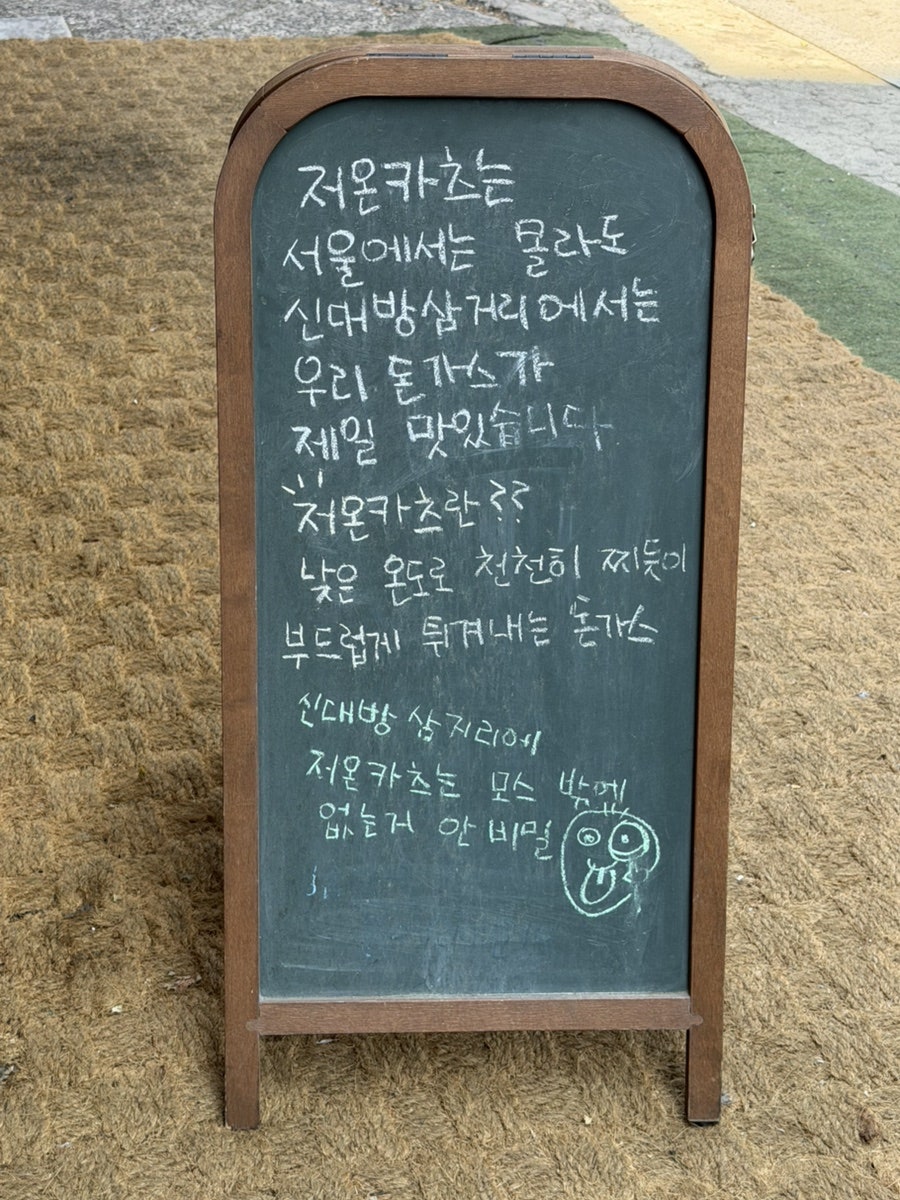 저온카츠는
서울에서는 몰라도
신대방삼거리에서는
우리 돈까스가
제일 맛있습니다
저온카츠란??
낮은 온도로 천천히 찌듯이
부드럽게 튀겨내는 돈까스
신대방 삼지리에
저온카츠는 모스 밖엔
없는거 안 비밀